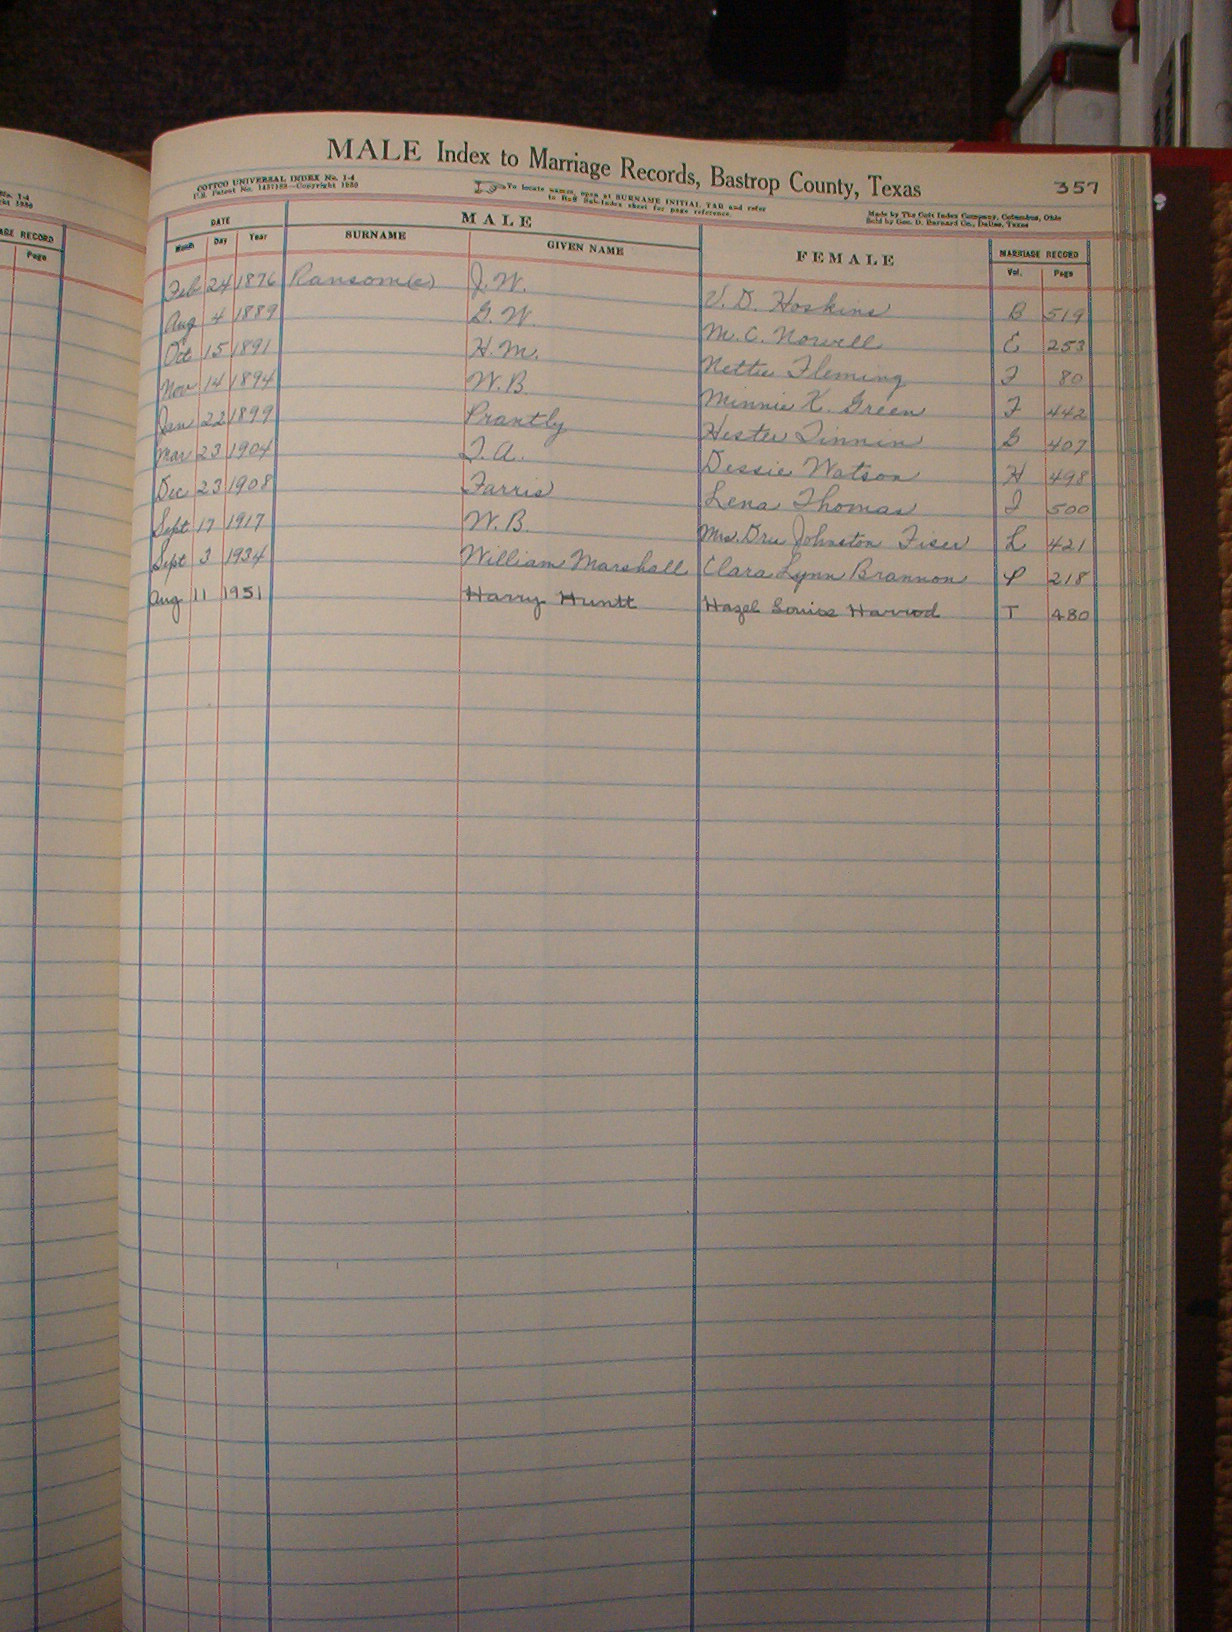 MALE Index to Marriage Records, Bastrop County, Texas 357
COTTCO UNIVERSAL INDEX No. 1-4
U.S. Patent No. 1457189—Copyright 1930
To locate names, open at SURNAME INITIAL TAB and refer
to Red Sub-Index sheet for page reference.
Made by The Cott Index Company, Columbus, Ohio
Sold by Geo. D. Barnard Co., Dallas, Texas
DATE MALE FEMALE MARRIAGE RECORD
Month Day Year SURNAME GIVEN NAME Vol. Page
Feb 24 1876 Ransom(e) J.W. V. D. Hoskins B 519
Aug 4 1889 G.W. M.C. Nowell E 253
Oct 15 1891 H.M. Nettie Fleming F 80
Nov 14 1894 W.B. Minnie K. Green F 442
Jan 22 1899 Prantly Hester Tinnin G 407
Mar 23 1904 T.A. Dessie Watson H 498
Dec 23 1908 Farris Lena Thomas I 500
Sept 17 1917 W.B. Mrs. Dru Johnston Fiser L 421
Sept 3 1934 William Marshall Clara Lynn Brannon P 218
Aug 11 1951 Harry Huntt Hazel Louise Harrod T 480
No. 1-4
AGE RECORD
Page